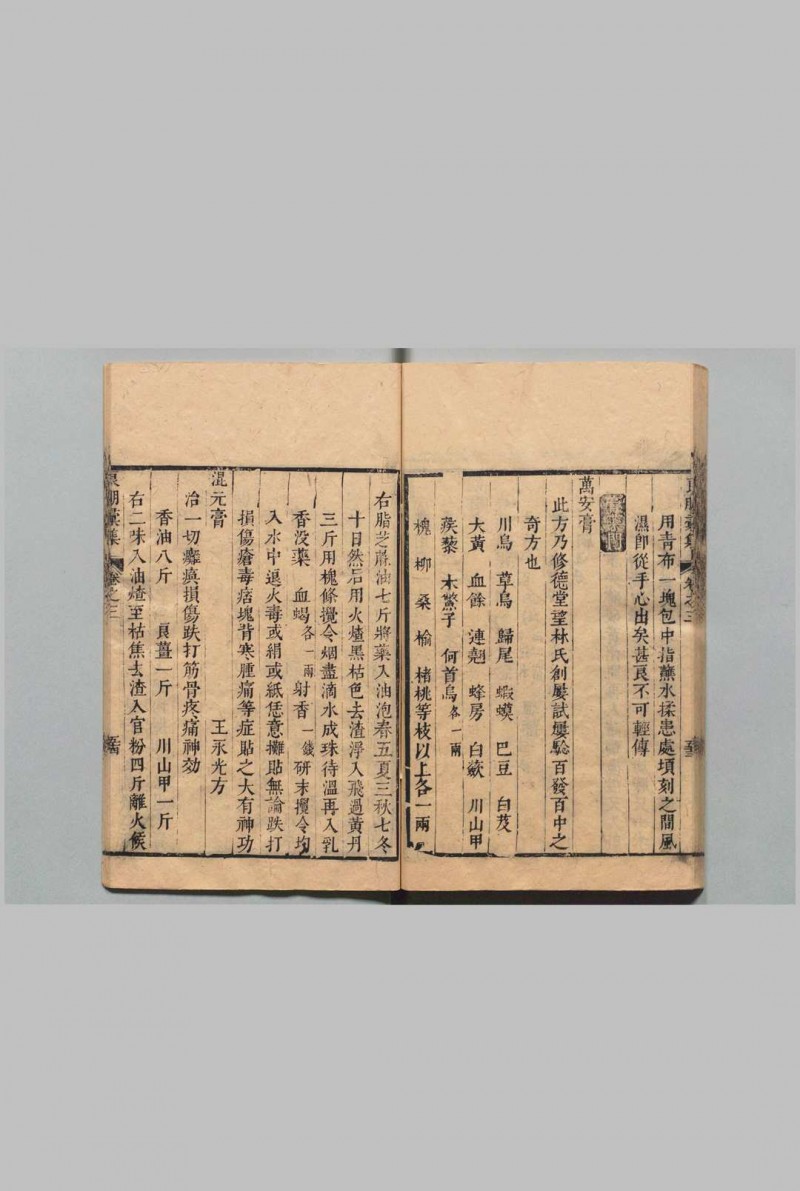 用青布一塊包中指蘸水揉患處頃刻之間風
濕即從手心出矣甚良不可輕傳
萬安膏
此方乃修德堂望林氏創屢試屢驗百發百中之
奇方也
川烏 草烏 歸尾 蝦蟆 巴豆 白芨
大黃 血餘 連翹 蜂房 白蘞 川山甲
疾藜 木鱉子 何首烏各一兩
槐 柳 桑 榆 楮桃等枝以上各一兩
右脂芝蔴油七斤將藥入油泡春五夏三秋七冬
十日然后用火煠黑枯色去渣浮入飛過黃丹
三斤用槐條攪令烟盡滴水成珠待溫再入乳
香没藥 血蝎各一兩射香一錢研末攪令均
入水中退火毒或絹或紙恁意攤貼無論跌打
損傷瘡毒痞塊背寒腫痛等症貼之大有神功
混元膏 王永光方
冶一切癱瘓損傷跌打筋骨疼痛神効
香油八斤 良薑一斤 川山甲一斤
右二味入油煠至枯焦去渣入官粉四斤離火候
卷之三